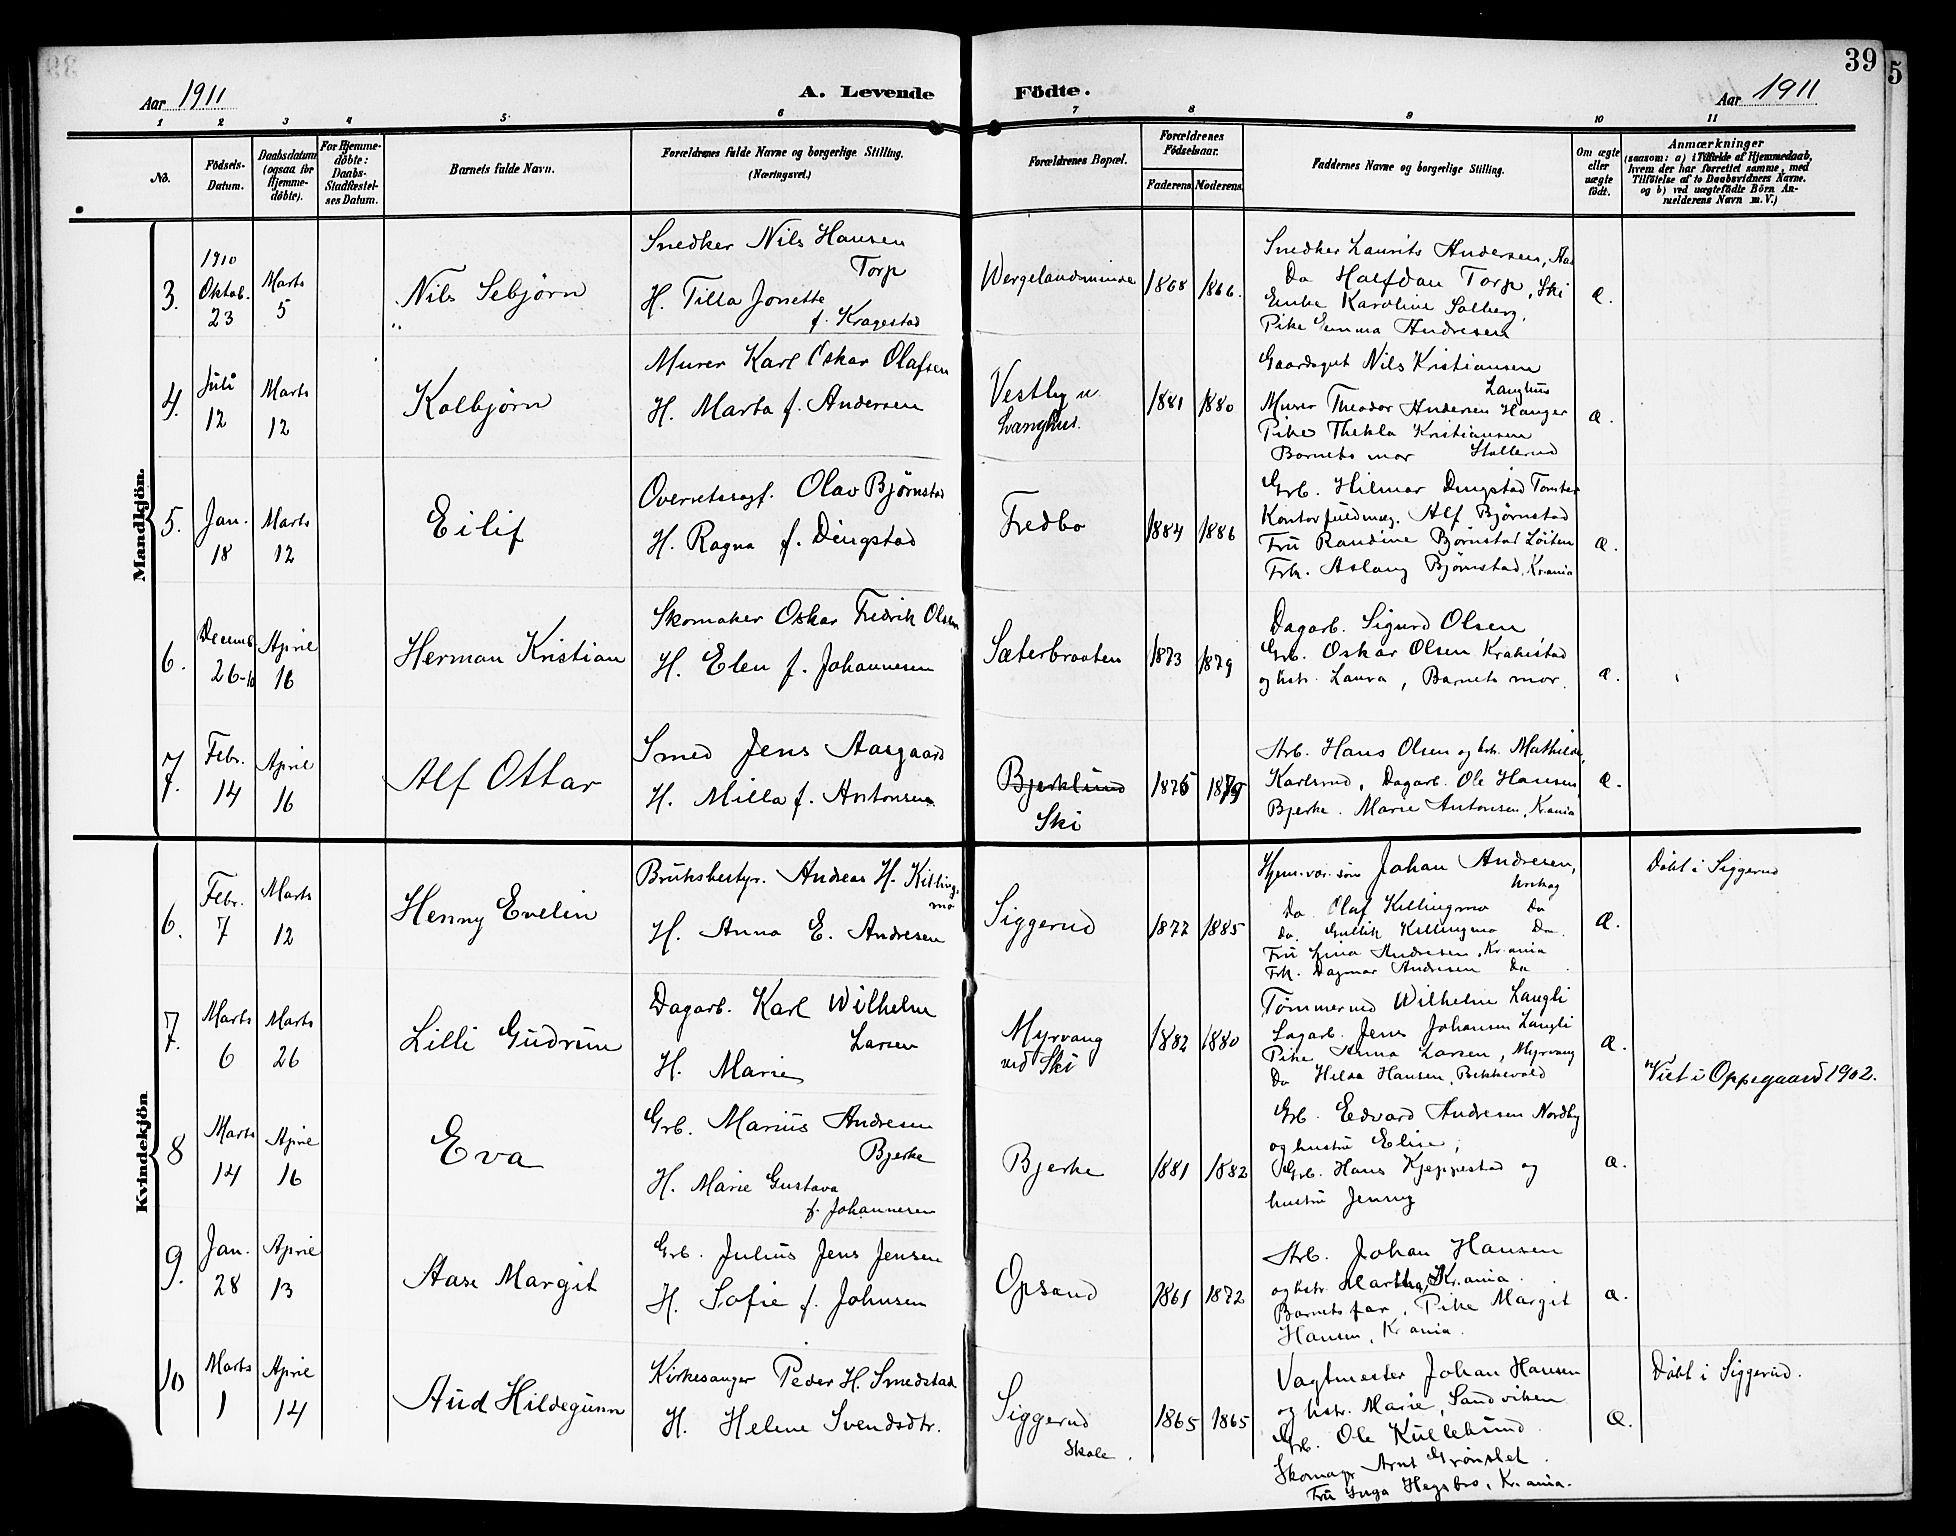 39
5
Aar 1911
A. Levende Födte.
Aar 1911
1 2 3 4 5 6 7 8 9 10 11
No.
Födsels-Datum.
Daabsdatum (ogsaa for Hjemme-döbte).
For Hjemme-döbte: Daabs-Stadfæstel-ses Datum.
Barnets fulde Navn.
Forældrenes fulde Navne og borgerlige Stilling.
(Næringsvei.)
Forældrenes Bopæl.
Forældrenes Födselsaar.
Faderens. Moderens.
Faddernes Navne og borgerlige Stilling.
Om ægte eller uægte födt.
Anmærkninger
(saasom: a) i Tilfælde af Hjemmedaab, hvem der har forrettet samme, med Tilföielse af to Daabsvidners Navne. og b) ved uægtefödte Börn An-melderens Navn m. V.)
Mandkjön.
3.
1910 Oktob. 23
Marts 5
Nils Sebjørn
Snedker Nils Hansen
Torp
H. Tilla Jonette
f. Kragestad
Wergelandsminde
1868 1866.
Snedker Laurits Andersen, Aas
Do Halfdan Torp, Ski
Enke Karoline Solberg,
Pike Emma Andresen
Æ.
4.
Juli 12
Marts 12
Kolbjørn
Murer Karl Oskar Olafsen
H. Marta f. Andersen
Vestby v
Langhus.
1881 1880
Gaardsgut Nils Kristiansen
Langhus
Murer Theodor Andersen Hauger
Pike Thekla Kristiansen
Barnets mor Stallerud
Æ.
5.
Jan. 18
Marts 12
Eilif
Overretssagf. Olav Bjørnstad
H. Ragna f. Dingstad
Fredbo
1884 1886
Grb. Hilmar Dingstad
Kontorfuldmæg. Alf Bjørnstad
Fru Randine Bjørnstad Løiten
Frk. Aslaug Bjørnstad, Kr.ania
Æ.
6.
Decemb. 26-10
April 16
Herman Kristian
Skomaker Oskar Fredrik Olsen
H. Elen f. Johannesen
Sæterbraaten
1873 1879
Dagarb. Sigurd Olsen
Grb. Oskar Olsen Krakestad
og hstr. Laura, Barnets mor.
Æ.
7.
Febr. 14
April 16
Alf Ottar
Smed Jens Aasgaard
H. Milla f. Antonsen
Bjerklund
Ski
1876 1879
Arb. Hans Olsen og hst. Mathilde,
Karlsrud, Dagarb. Ole Hansen
Bjerke. Marie Antonsen, Kr.ania
Æ.
Kvindekjön
6.
Febr. 7
Marts 12
Henny Evelin
Bruksbestyr. Andreas H. Killing-
mo
H. Anna E. Andresen
Siggerud
1872 1885
Hjem.vær. søn Johan Andresen,
Do Olaf Killingmo Do
Do. Gullik Killingmo Do.
Fru Lina Andresen, Kr.ania
Frk. Dagmar Andresen Do
Æ.
Døbt i Siggerud
7.
Marts 6
Marts 26
Lilli Gudrun
Dagarb. Karl Wilhelm
Larsen
H. Marie
Myrvang
ved Ski
1882 1880
Tømmermd Wilhelm Langli
Sagarb. Jens Johansen Langli
Pike Anna Larsen, Myrvang
Do Hilda Hansen, Bekkevold
Æ.
Viet i Oppegaard 1902.
8
Marts 14
April 16
Eva
Grb. Marius Andresen
Bjerke
H. Marie Gustava
f. Johannesen
Bjerke
1881 1882
Grb. Edvard Andresen Nordby
og hustru Elise,
Grb. Hans Kjeppestad og
hustru Jenny
Æ.
9.
Jan. 28
April 13
Aase Margit
Grb. Julius Jens Jensen
H. Sofie f. Johnsen
Opsand
1861 1872
Arb. Johan Hansen
og hstr. Martha, Kr.ania.
Barnets far, Pike Margit
Hansen, Kr.ania.
Æ.
10
Marts 1
April 14
Aud Hildegunn
Kirkesanger Peder H. Smedstad
H. Helene Svendsdtr.
Siggerud
Skole.
1865 1865
Vagtmester Johan Hansen
og hstr. Marie, Sandviken
Grb. Ole Kullebund
Skomagr Arnt Grønslet.
Fru Inga Hegsbro, Kr.ania.
Æ.
Døbt i Siggerud.